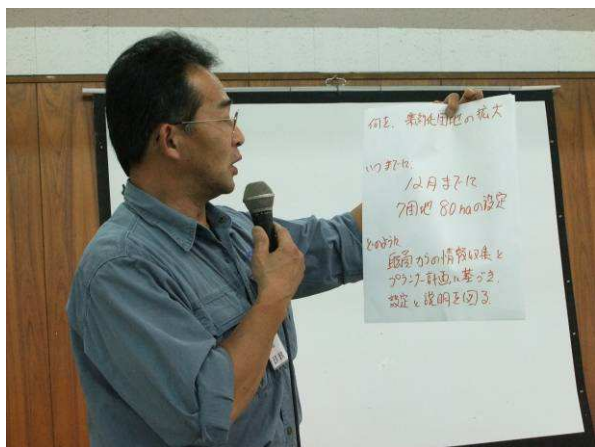 何を、集約化団地の拡大
いつまでに、
12月までに
7団地 80haの設定
どのように
職員からの情報収集と
プランナー計画に基づき、
設定と説明を図る。